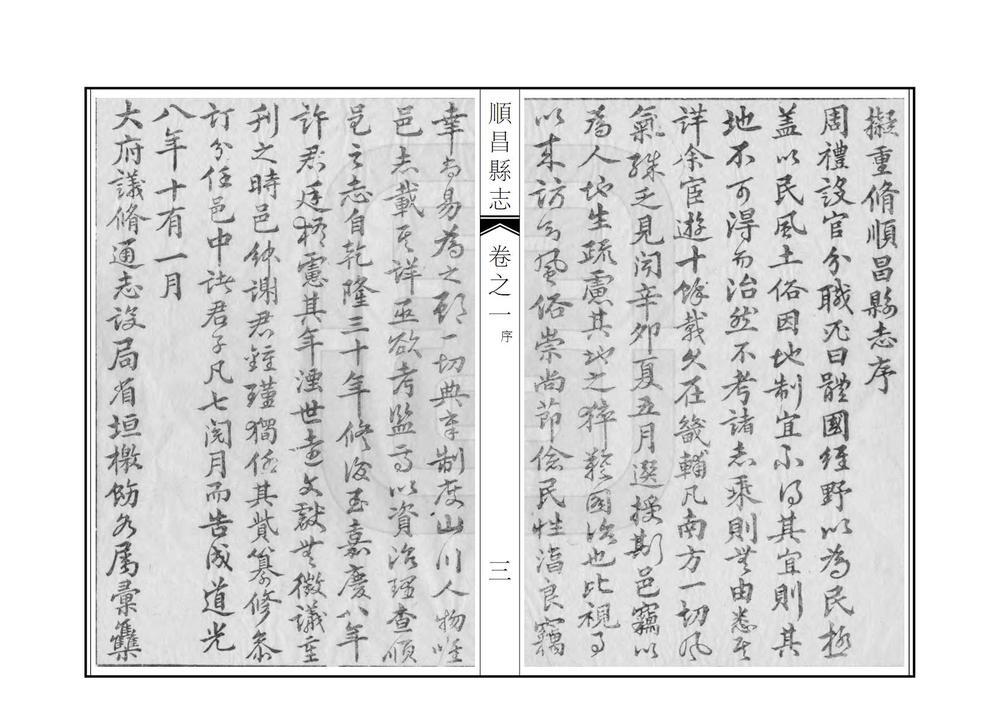 擬重脩順昌縣志序
周禮設官分職必曰體國經野以為民極
蓋以民風土俗因地制宜不得其宜則其
地不可得而治然不考諸志乘則無由悉其
詳余宦遊十餘載久在畿輔凡南方一切風
氣殊乏見聞辛卯夏五月選授斯邑竊以
為人地生疏慮其地之猝難圖治也比視事
以來訪知風俗崇尚節儉民性滔良竊
順昌縣志
卷之一
序
三
幸為易為之邦一切典章制度山川人物唯
邑志載其詳亟欲考鑑焉以資治理查順
邑之志自乾隆三十年修後至嘉慶八年
許君庭梧慮其年湮世遠文獻無徵議重
刊之時邑紳謝君鍾瑾獨任其貲纂修參
訂分任邑中諸君子凡七閱月而告成道光
八年十有一月
大府議脩通志設局省垣檄飭各屬彙集